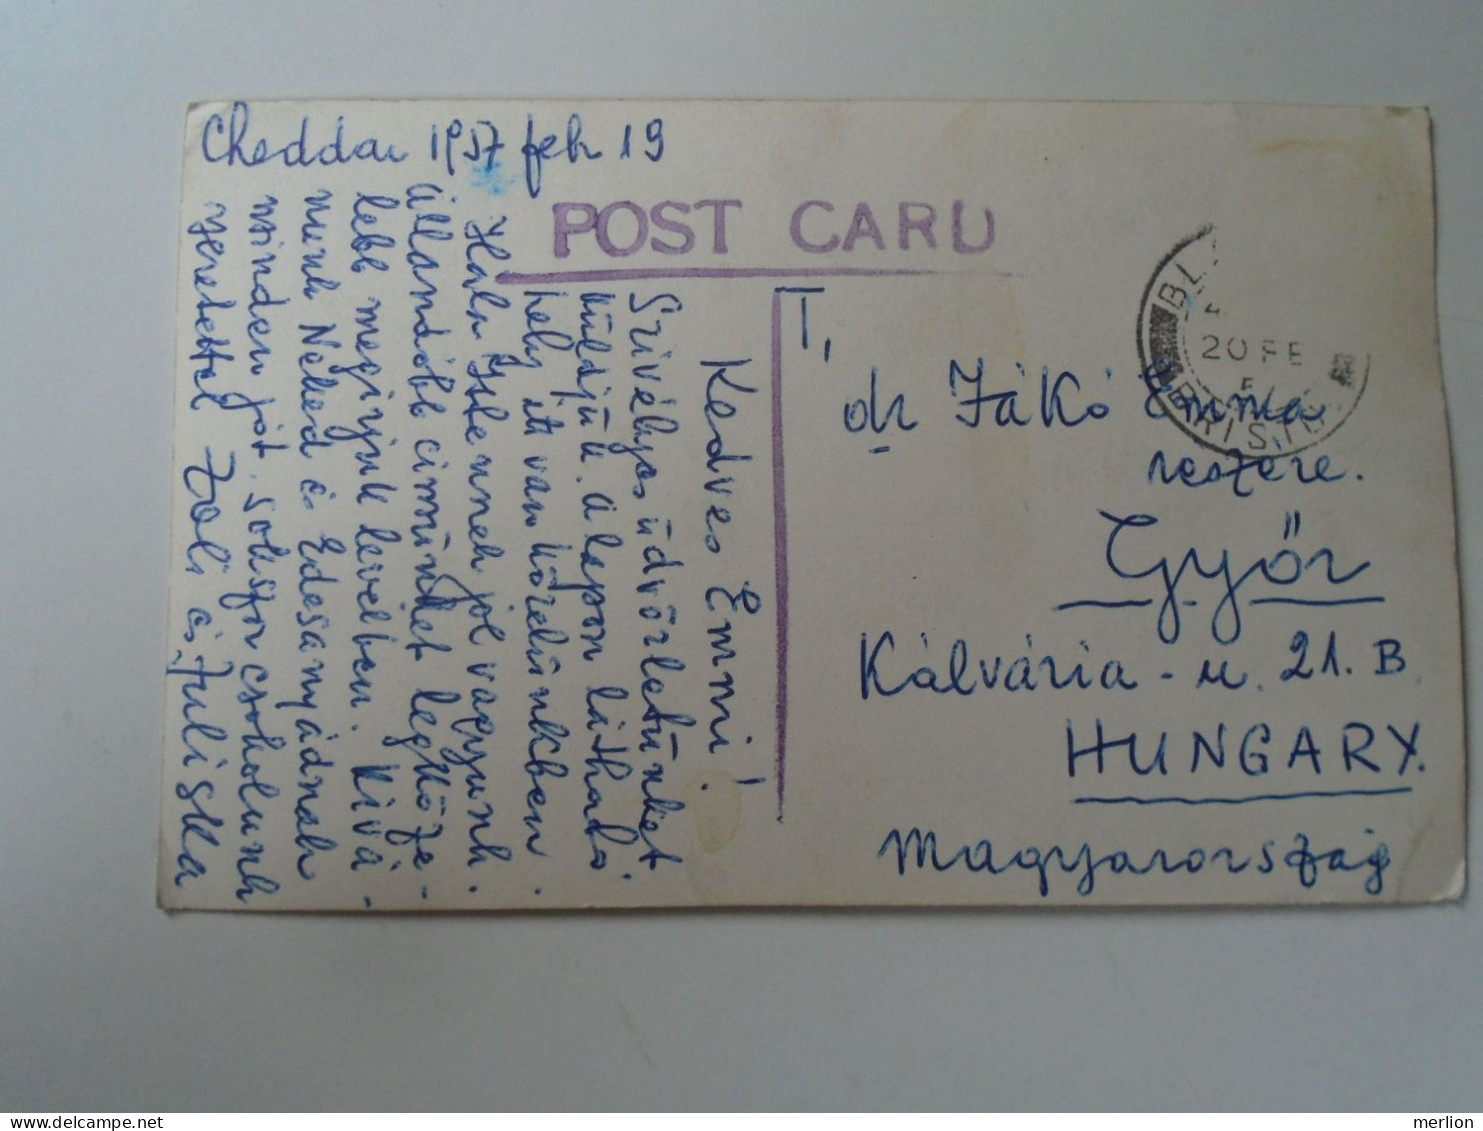 Cheddar 1957 feb 19
POST CARD
Kedves Emmi!
Szivélyes üdvözletünket
küldjük. A lapon látható
hely itt van közelünkben.
Hála Istennek jól vagyunk.
állandóbb címünket legköze-
lebb megirjuk levélben. Kívá-
nunk Neked és Édesanyádnak
minden jót. sokszor csokolunk
szeretettel Zoli és Juliska
T,
dr Jákó Emma
részére.
Győr
Kálvária-u. 21. B
HUNGARY.
Magyarország
20 FE
BRISTOL
merlion